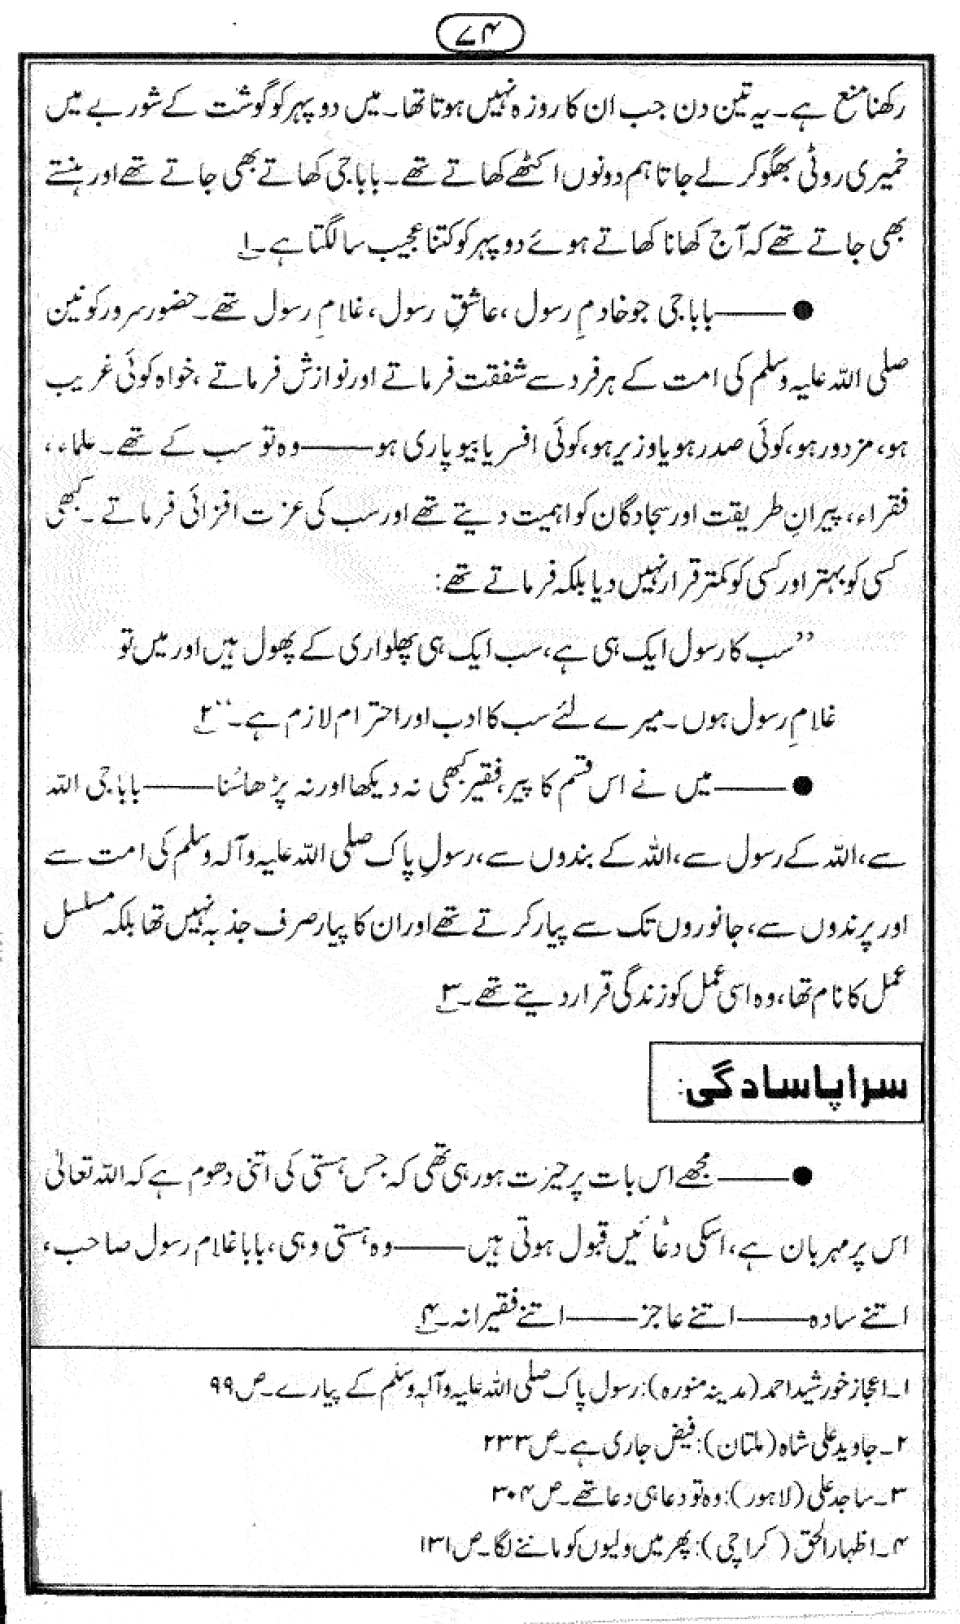 ۷۴
رکھنا منع ہے۔ یہ تین دن جب ان کا روزہ نہیں ہوتا تھا۔ میں دوپہر کو گوشت کے شوربے میں
خمیری روٹی بھگو کر لے جاتا ہم دونوں اکٹھے کھاتے تھے۔ باباجی کھاتے بھی جاتے تھے اور ہنستے
بھی جاتے تھے کہ آج کھانا کھاتے ہوئے دوپہر کو کتنا عجیب سا لگتا ہے۔۱
●——باباجی جو خادمِ رسول، عاشقِ رسول، غلامِ رسول تھے۔ حضور سرور کونین
صلی اللہ علیہ وسلم کی امت کے ہر فرد سے شفقت فرماتے اور نوازش فرماتے، خواہ کوئی غریب
ہو، مزدور ہو، کوئی صدر ہو یا وزیر ہو، کوئی افسر یا بیوپاری ہو——وہ تو سب کے تھے۔ علماء،
فقراء، پیرانِ طریقت اور سجادگان کو اہمیت دیتے تھے اور سب کی عزت افزائی فرماتے۔ کبھی
کسی کو بہتر اور کسی کو کمتر قرار نہیں دیا بلکہ فرماتے تھے:
’’سب کا رسول ایک ہی ہے، سب ایک ہی پھلواری کے پھول ہیں اور میں تو
غلامِ رسول ہوں۔ میرے لئے سب کا ادب اور احترام لازم ہے۔‘‘۲
●——میں نے اس قسم کا پیر، فقیر کبھی نہ دیکھا اور نہ پڑھا سُنا——باباجی اللہ
سے، اللہ کے رسول سے، اللہ کے بندوں سے، رسولِ پاک صلی اللہ علیہ وآلہ وسلم کی امت سے
اور پرندوں سے، جانوروں تک سے پیار کرتے تھے اور ان کا پیار صرف جذبہ نہیں تھا بلکہ مسلسل
عمل کا نام تھا، وہ اسی عمل کو زندگی قرار دیتے تھے۔۳
سراپا سادگی:
●——مجھے اس بات پر حیرت ہو رہی تھی کہ جس ہستی کی اتنی دھوم ہے کہ اللہ تعالیٰ
اس پر مہربان ہے، اسکی دعائیں قبول ہوتی ہیں——وہ ہستی وہی، بابا غلام رسول صاحب،
اتنے سادہ——اتنے عاجز——اتنے فقیرانہ۔۴
۱۔ اعجاز خورشید احمد (مدینہ منورہ): رسول پاک صلی اللہ علیہ وآلہ وسلم کے پیارے۔ ص۹۹
۲۔ جاوید علی شاہ (ملتان): فیض جاری ہے۔ ص۲۳۳
۳۔ ساجد علی (لاہور): وہ تو دعا ہی دعا تھے۔ ص۳۰۴
۴۔ اظہار الحق (کراچی): پھر میں ولیوں کو ماننے لگا۔ ص۱۳۱